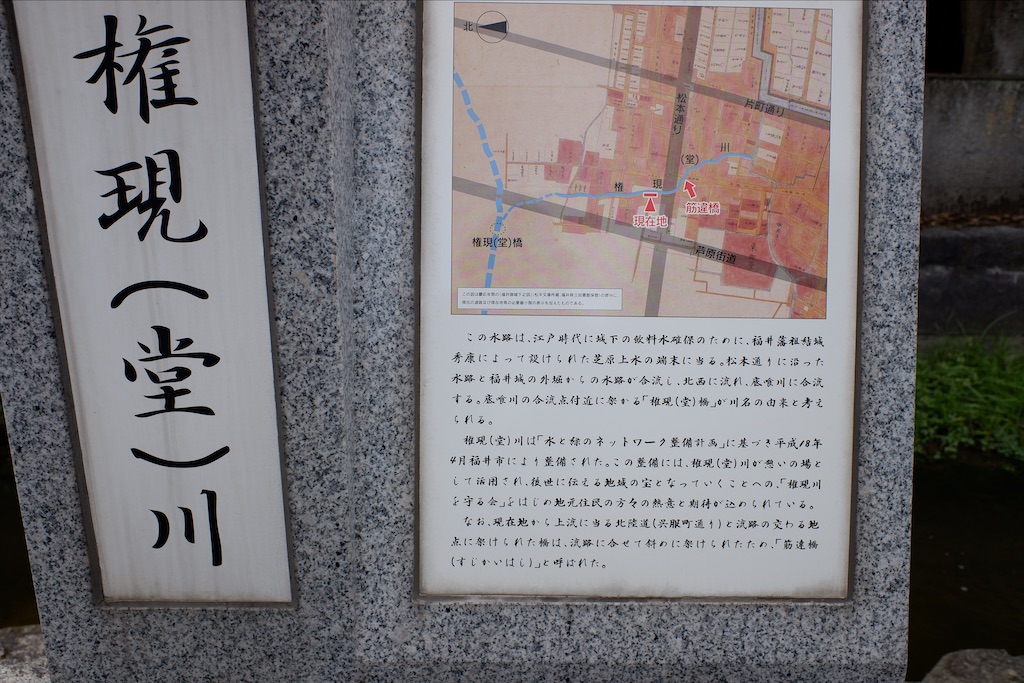 権現(堂)川
北
片町通り
松本通り
川
(堂)
現
権
筋違橋
現在地
権現(堂)橋
芦原街道
この水路は、江戸時代に城下の飲料水確保のために、福井藩祖結城
秀康によって設けられた芝原上水の端末に当る。松本通りに沿った
水路と福井城の外堀からの水路が合流し、北西に流れ、底喰川に合流
する。底喰川の合流点付近に架かる「権現(堂)橋」が川名の由来と考え
られる。
権現(堂)川は「水と緑のネットワーク整備計画」に基づき平成18年
4月福井市により整備された。この整備には、権現(堂)川が憩いの場と
して活用され、後世に伝える地域の宝となっていくことへの、「権現川
を守る会」をはじめ地元住民の方々の熱意と期待が込められている。
なお、現在地から上流に当る北陸道(呉服町通り)と流路の交わる地
点に架けられた橋は、流路に合せて斜めに架けられたため、「筋違橋
(すじかいはし)」と呼ばれた。